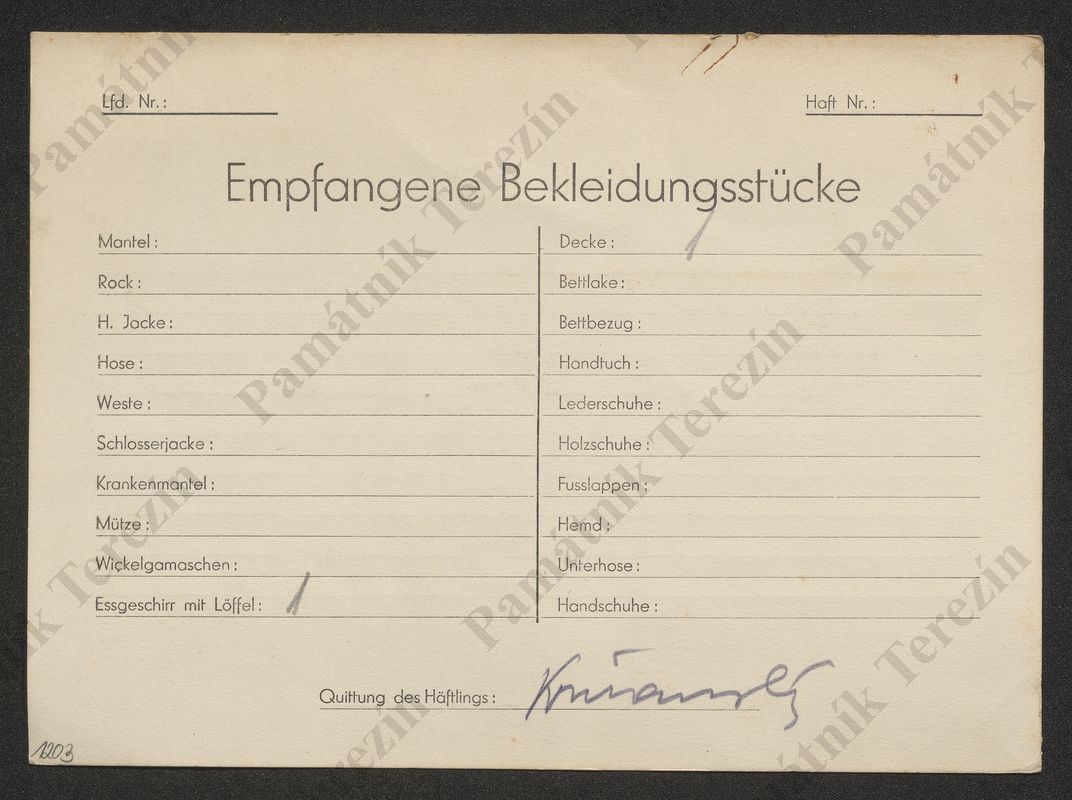 Lfd. Nr.:
Haft Nr.:
Empfangene Bekleidungsstücke
Mantel:
Rock:
H. Jacke:
Hose:
Weste:
Schlosserjacke:
Krankenmantel:
Mütze:
Wickelgamaschen:
Essgeschirr mit Löffel: 1
Decke: 1
Bettlake:
Bettbezug:
Handtuch:
Lederschuhe:
Holzschuhe:
Fusslappen:
Hemd:
Unterhose:
Handschuhe:
Quittung des Häftlings:
1203
Památník Terezín